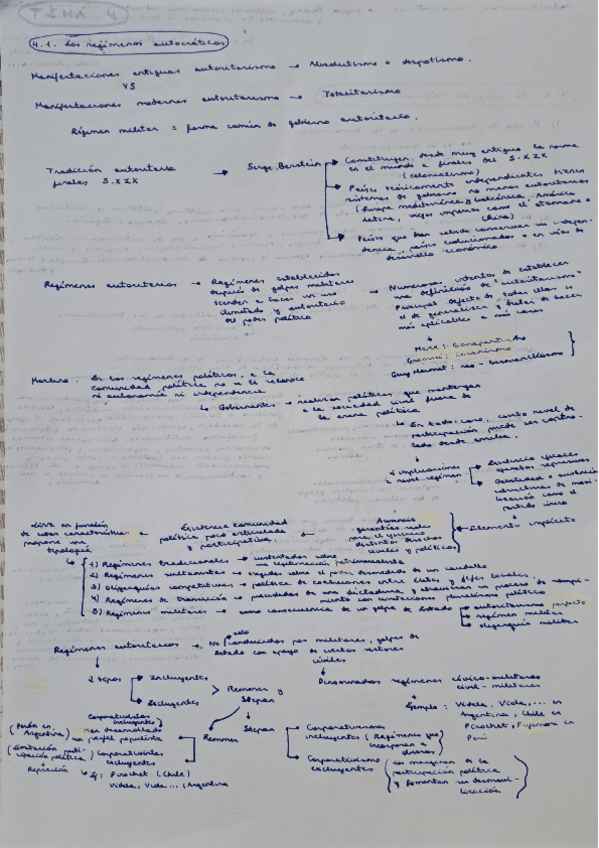 TEMA 4
4.1. Los regímenes autocráticos
Manifestaciones antiguas autoritarismo → Absolutismo o despotismo.
VS
Manifestaciones modernas autoritarismo → Totalitarismo
Régimen militar = forma común de gobierno autoritario.
Tradición autoritaria finales S.XIX → Serge Berstein
→ Constituyen, desde muy antiguo, la norma
en el mundo a finales del S.XIX
(colonialismo)
→ Países teóricamente independientes
sistemas de gobierno no menos autoritarios
(Europa mediterránea y balcánica, América
latina, viejos imperios como el otomano o
china)
→ Países que han sabido conservar su indepen-
dencia, países evolucionados o en vías de
desarrollo económico
Regímenes autoritarios → Regímenes establecidos
después de golpes militares
tienden a hacer un uso
ilimitado y autoritario
del poder político
→ Numerosos intentos de establecer
una definición de "autoritarismo"
Principal defecto de todas ellas es
el de generalizar y tratar de hacer
más aplicables a más casos
Marx: Bonapartismo
Gramsci: cesarismo
Guy Hermet: neo-bismarckismo
En los regímenes políticos, a la
comunidad política no se le reconoce
ni autonomía ni independencia
↳ Gobernantes → realizan políticas que mantengan
a la sociedad civil fuera de
la arena política
↳ En todo caso, cierto nivel de
participación puede ser contro-
lado desde arriba.
2 implicaciones
a nivel-régimen
→ Existencia eficaces
aparatos represivos
→ Debilidad o ausencia
estructuras de movi-
lización como el
partido único
Linz en función
de estas características
propone una
tipología
Existencia comunidad
política poco articulada
y participativa.
Ausencia
garantías reales
para el ejercicio
distintos derechos
civiles y políticos
Elemento implícito
1) Regímenes tradicionales → sustentados sobre
una legitimación patrimonialista
2) Regímenes sultanistas → erigidos sobre el poder desmedido de un caudillo
3) Oligarquías competitivas → política de coaliciones entre élites y jefes locales.
4) Regímenes de transición → precedidas de una dictadura, y atraviesan un proceso de rompi-
miento con limitaciones pluralismo político
5) Regímenes militares → como consecuencia de un golpe de Estado
→ autoritarismo perfecto
→ régimen militar
→ oligarquía militar
Regímenes autoritarios → No solo conducidos por militares, golpes de
estado con apoyo de ciertos sectores
civiles
→ Denominados regímenes cívico-militares
civil-militares
Ejemplo: Videla, Viola,... en
Argentina, Chile en
Pinochet, Fujimori en
Perú
2 tipos
→ Incluyentes
→ Excluyentes
> Remmer y
Stepan
Stepan
→ Corporativismos
incluyentes (Regímenes que
incorporan a
diversos)
→ Corporativismo
excluyentes
(Los marginan de la
participación política
y fomentan su desmovi-
lización)
Remmer
Corporativistas
incluyentes
(Perón en
Argentina)
Han desarrollado
un perfil populista
(limitación parti-
cipación política)
Corporativistas
excluyentes
Represión → Ej: Pinochet (Chile)
Videla, Viola... (Argentina